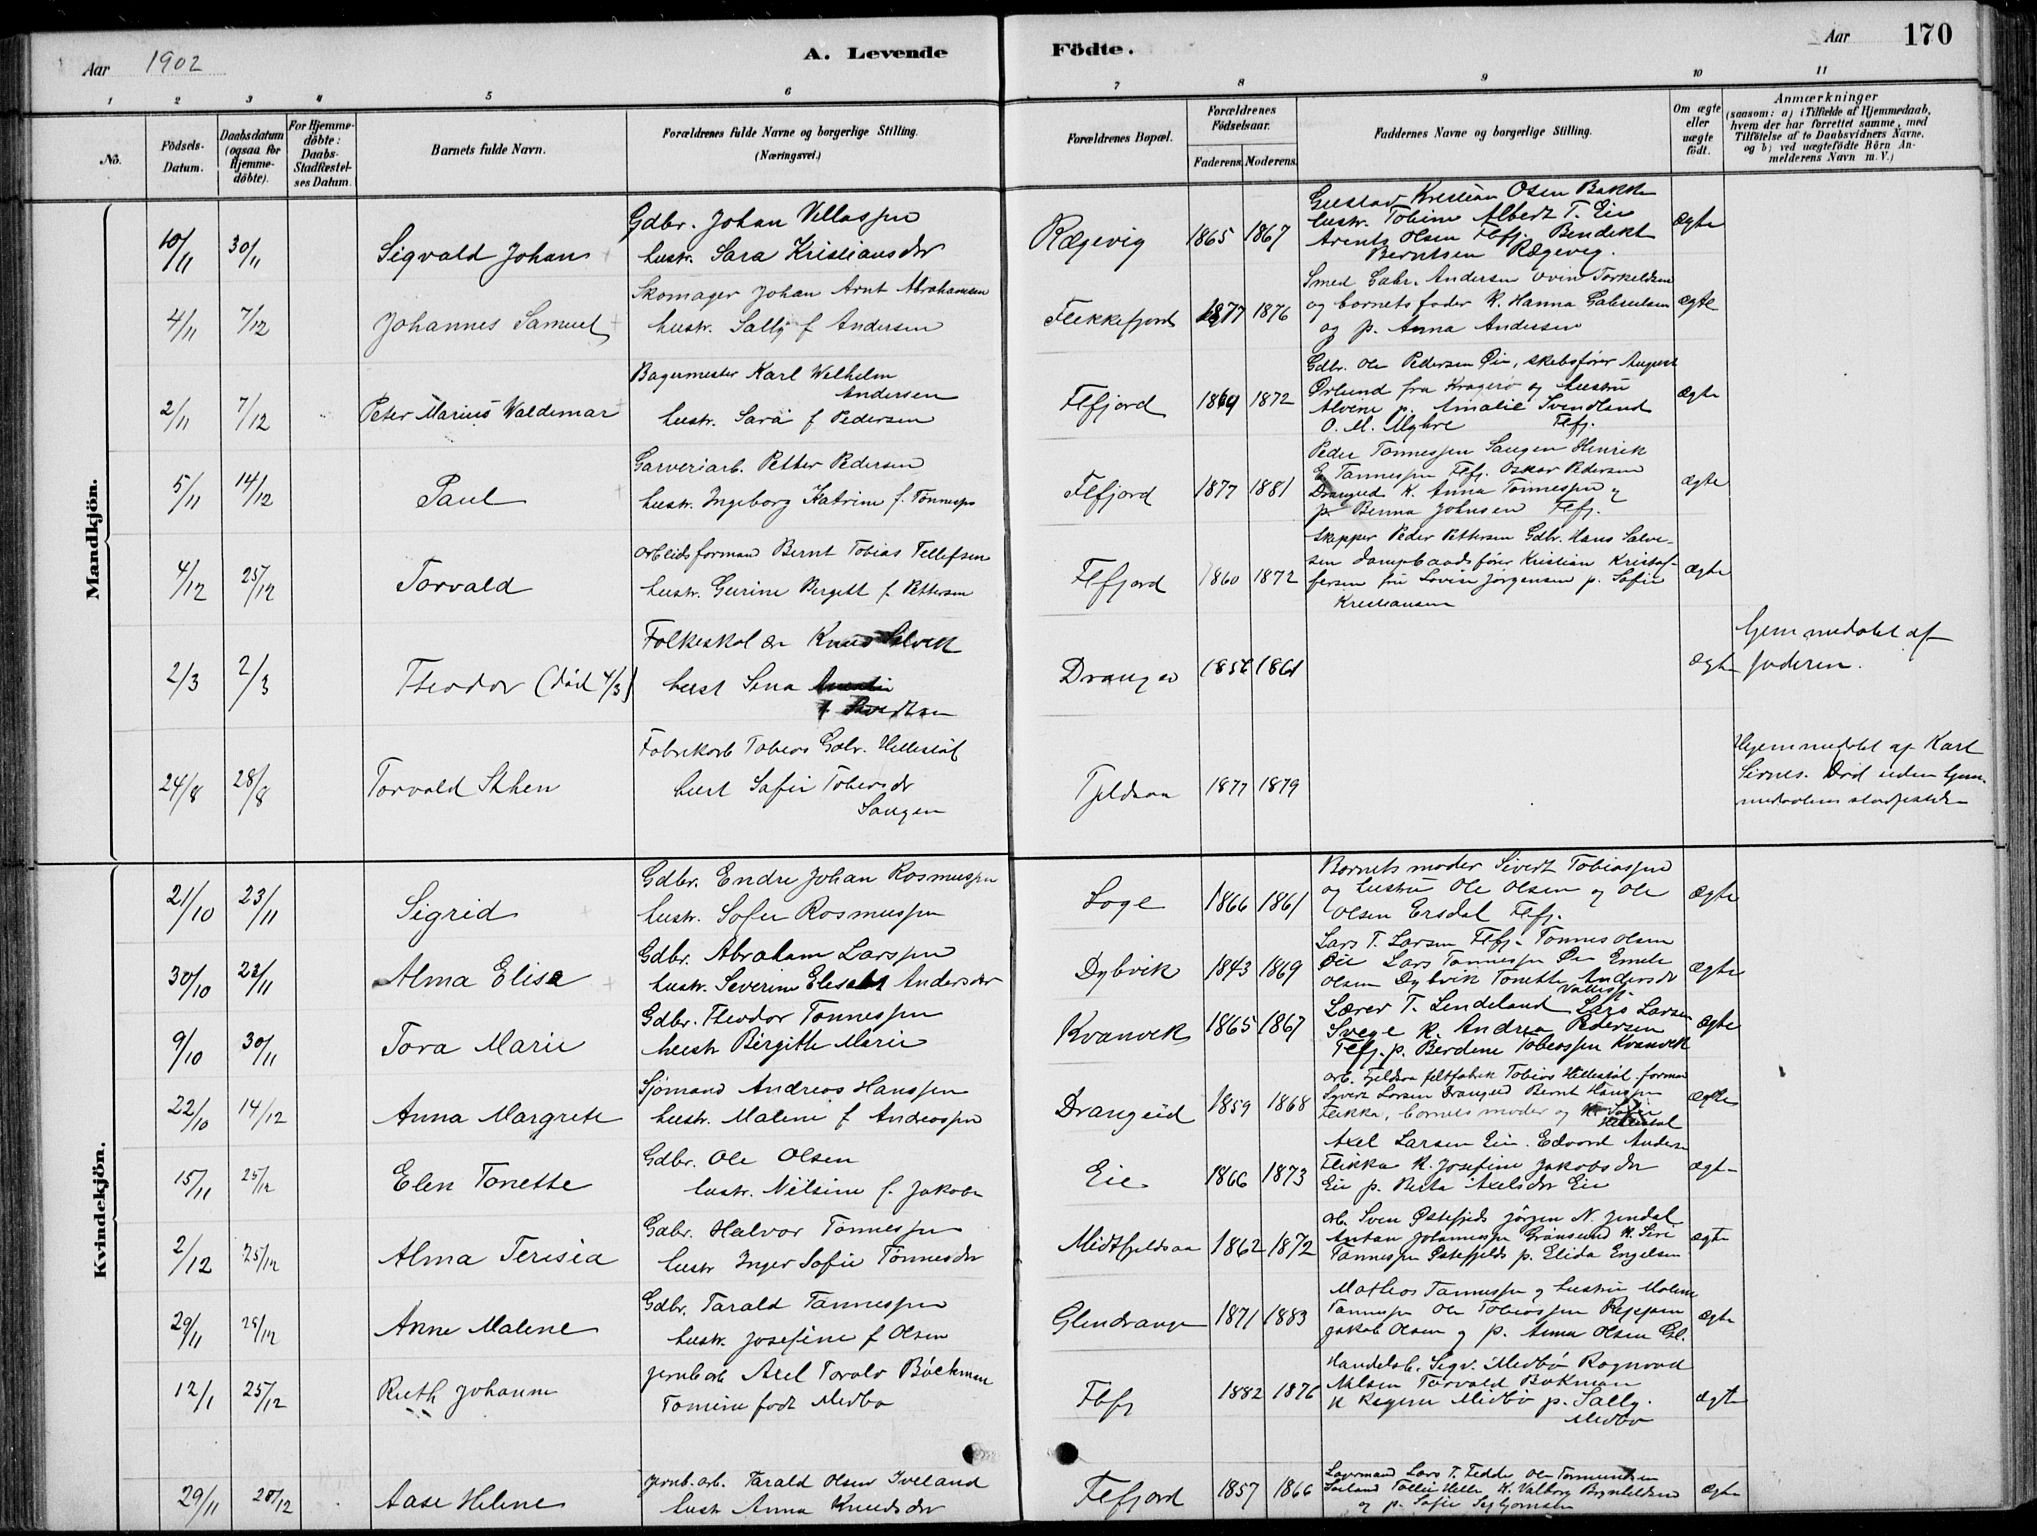 Aar 1902 A. Levende Födte. Aar 170
1 2 3 4 5 6 7 8 9 10 11
No.
Födsels-
Datum.
Daabsdatum
(ogsaa for
Hjemme-
döbte).
For Hjemme-
döbte:
Daabs-
Stadfæstel-
ses Datum.
Barnets fulde Navn.
Forældrenes fulde Navne og borgerlige Stilling.
(Næringsvei.)
Forældrenes Bopæl.
Forældrenes
Födselsaar.
Faderens. Moderens.
Faddernes Navne og borgerlige Stilling.
Om ægte
eller
uægte
födt.
Anmærkninger
(saasom: a) i Tilfælde af Hjemmedaab,
hvem der har forrettet samme, med
Tilföielse af to Daabsvidners Navne.
og b) ved uægtefödte Börn An-
melderens Navn m. V.)
Mandkjön.
10/11 30/11 Sigvald Johan
Gdbr. Johan Villassen
hustr. Sara Kristiansdr
Rægevig 1865 1867
Gustav Kristian Olsen Bakke
hustr. Tobine Albert T. Eie
Arentz Olsen Flfj. Bendikt
Berntsen Rægevig.
ægte
4/11 7/12 Johannes Samuel
Skomager Johan Arnt Abrahamsen
hustr. Sally f Andersen
Flekkefjord 1877 1876
Smed Gabr. Andersen Ovin Torkeldsen
og barnets fader K. Hanna Gabrielsen
og p. Anna Andersen
ægte
2/11 7/12 Peter Marius Waldemar
Bagermester Karl Wilhelm
Andersen
hustr. Sara f Pedersen
Flfjord 1869 1872
Gdbr. Ole Pedersen Öie, skibsförer August
Örlund fra Kragerö og hustru
Alvine p. Amalie Svendland
O. M. Myhre Flfj.
ægte
5/11 14/12 Paul
Garveriarb. Petter Pedersen
hustr. Ingeborg Katrine f. Tönnesen
Flfjord 1877 1881
Peder Tönnessen Laugen Henrik
E Tönnessen Flfj. Oskar Pedersen
Drangeid K. Anna Tönnessen og
p Benna Johnsen Flfj.
ægte
4/12 25/12 Torvald
Arbeidsformand Bernt Tobias Tellefsen
hustr. Geirine Bergitt f. Pettersen
Flfjord 1860 1872
Skipper Peder Pettersen Gdbr. Hans Salve-
sen dampbaadsförer Kristian Kristof-
fersen fru Lovise Jörgensen p. Sofie
Kristiansen
ægte
2/3 2/3 Theodor (död 4/3)
Folkeskol
hust Sina
Drangeid 1861
ægte
Hjemmedöbt af
faderen.
24/8 28/8 Torvald Sthen
Fabrikarb Tobias Gabr. Hellestöl
hust Sofie Tobiasdr
Laugen
Fjeldsaa 1877 1879
Hjemmedöbt af Karl
Sirnes. Död uden hjem-
medaabens stadfestelse
Kvindekjön.
21/10 23/11 Sigrid
Gdbr. Endre Johan Rasmussen
hustr. Sofie Rasmussen
Loge 1866 1861
Barnets moder Sivert Tobiassen
og hustru Ole Olsen og Ole
Olsen Ersdal Flfj.
ægte
30/10 23/11 Alma Elise
Gdbr. Abraham Larssen
hustr. Severine Elisabet Andersdr
Dybvik 1843 1869
Lars T. Larsen Flfj. Tönnes Olsen
Öie Lars Tönnessen Öie Emele
Olsen Dybvik Tonette Andersdr
ægte
9/10 30/11 Tora Marie
Gdbr. Theodor Tönnessen
hustr Birgitte Marie
Kvanvik 1865 1867
Lærer T. Lindeland Lars Larsen
Svege K. Andrea Pedersen
Flfj. p. Berdine Tobiassen Kvanvik
ægte
22/10 14/12 Anna Margrete
Sjömand Andreas Hanssen
hustr. Malene f Andreassen
Drangeid 1859 1868
arb. Fjeldsaa filtfabrik Tobias Hellestöl. forman
Syvert Larsen Drangeid Bernt Hanssen
Flikka, barnets moder og K Sofie
Hellestöl
ægte
15/11 25/12 Elen Tonette
Gdbr. Ole Olsen
hustr. Nilsine f. Jakobs
Eie 1866 1873
Axel Larsen Eie. Edvard Andersen
Flikka K. Josefine Jakobsdr
Eie p. Berta Axelsdr Eie
ægte
2/12 25/12 Alma Terisia
Gdbr. Halvor Tönnessen
hustr Inger Sofie Tönnesdr
Midtfjeldsaa 1862 1872
arb. Sven Östefjelds Jörgen N. Jendal
Antan Johannessen Grönsund K. Siri
Tönnessen Östefjelds p. Elida Engelsen
ægte
29/11 25/12 Anne Malene
Gdbr. Tarald Tönnessen
hustr. Josefine f Olsen
Glendrange 1871 1883
Mathias Tönnessen og hustru Malene
Tönnessen Ole Tobiassen
Jakob Olsen og p. Anna Olsen Gl.
ægte
12/1 25/12 Ruth Johanne
Jernb arb Axel Torvald Böckman
Tomine födt Midbö
Flfj 1882 1876
Handelsb. Sigv. Midbö Ragnvad
Nilsen Torvald Bökman
K Ragna Midbö p. Sally
Midbö
ægte
29/11 28/12 Aase Helene
Jernb. arb. Tarald Olsen Iveland
hustr Anna Knudsdr
Flfjord 1857 1866
Lars T. Fedde Ole Tormundsen
K. Valborg Brynildsen
og p. Sofie
ægte